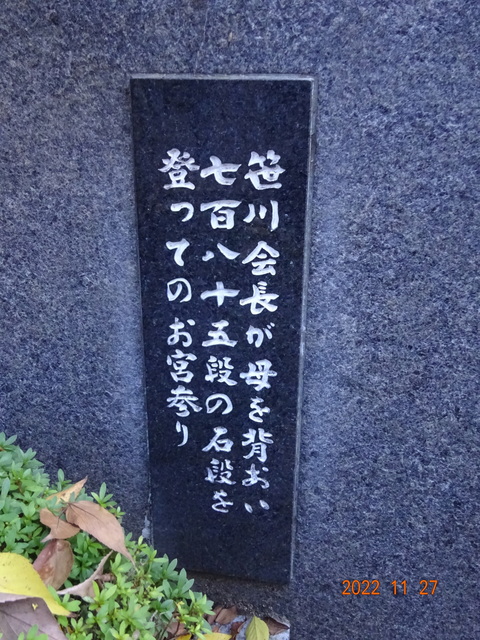 笹川会長が母を背おい
七百八十五段の石段を
登つてのお宮参り
2022 11 27